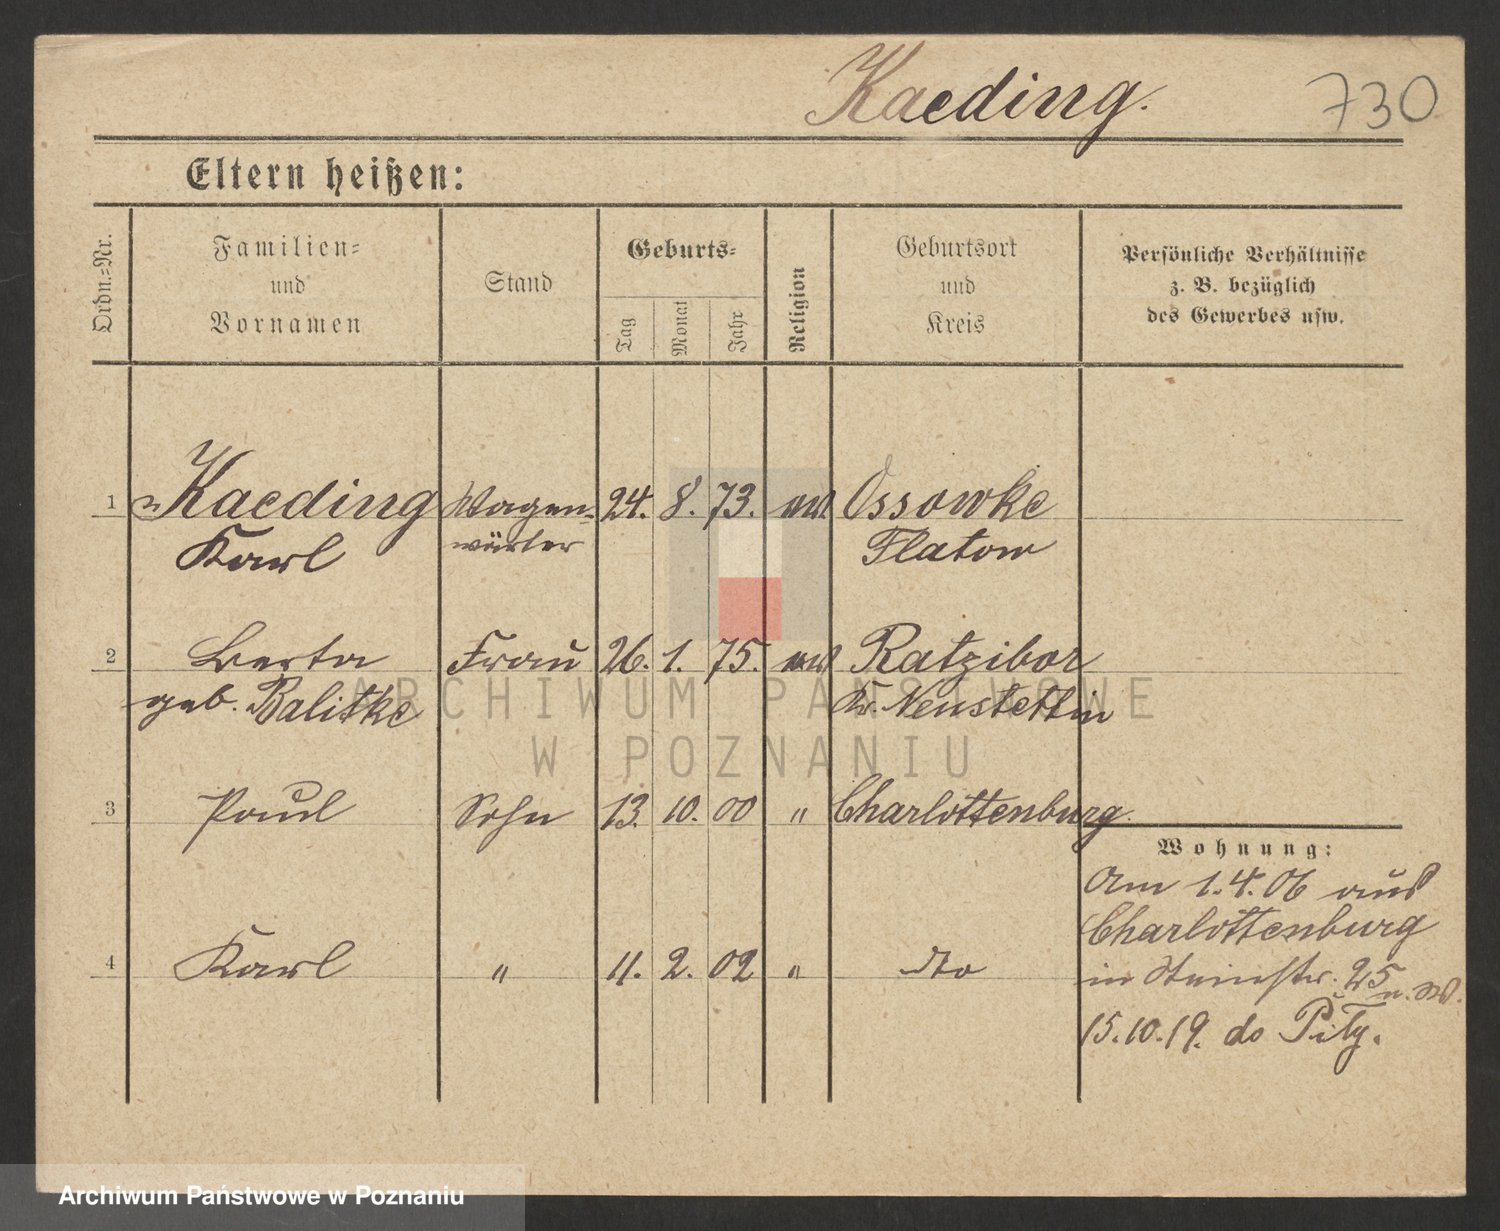 Kaeding.
730
Eltern heißen:
Ordn.=Nr.
Familien=
und
Vornamen
Stand
Geburts=
Tag
Monat
Jahr
Religion
Geburtsort
und
Kreis
Persönliche Verhältnisse
z. B. bezüglich
des Gewerbes usw.
1 Kaeding Wagen= 24. 8. 73. ev. Ossowke
Karl wärter Flatow
2 Berta Frau 26. 1. 75. ev. Ratzibor
geb. Balitke Kr. Neustettin
3 Paul Sohn 13. 10. 00 " Charlottenburg.
4 Karl " 11. 2. 02 " do
Wohnung:
Am 1.4.06 aus
Charlottenburg
in Steinstr. 25
15.10.19. do Piły.
ARCHIWUM PAŃSTWOWE
W POZNANIU
Archiwum Państwowe w Poznaniu